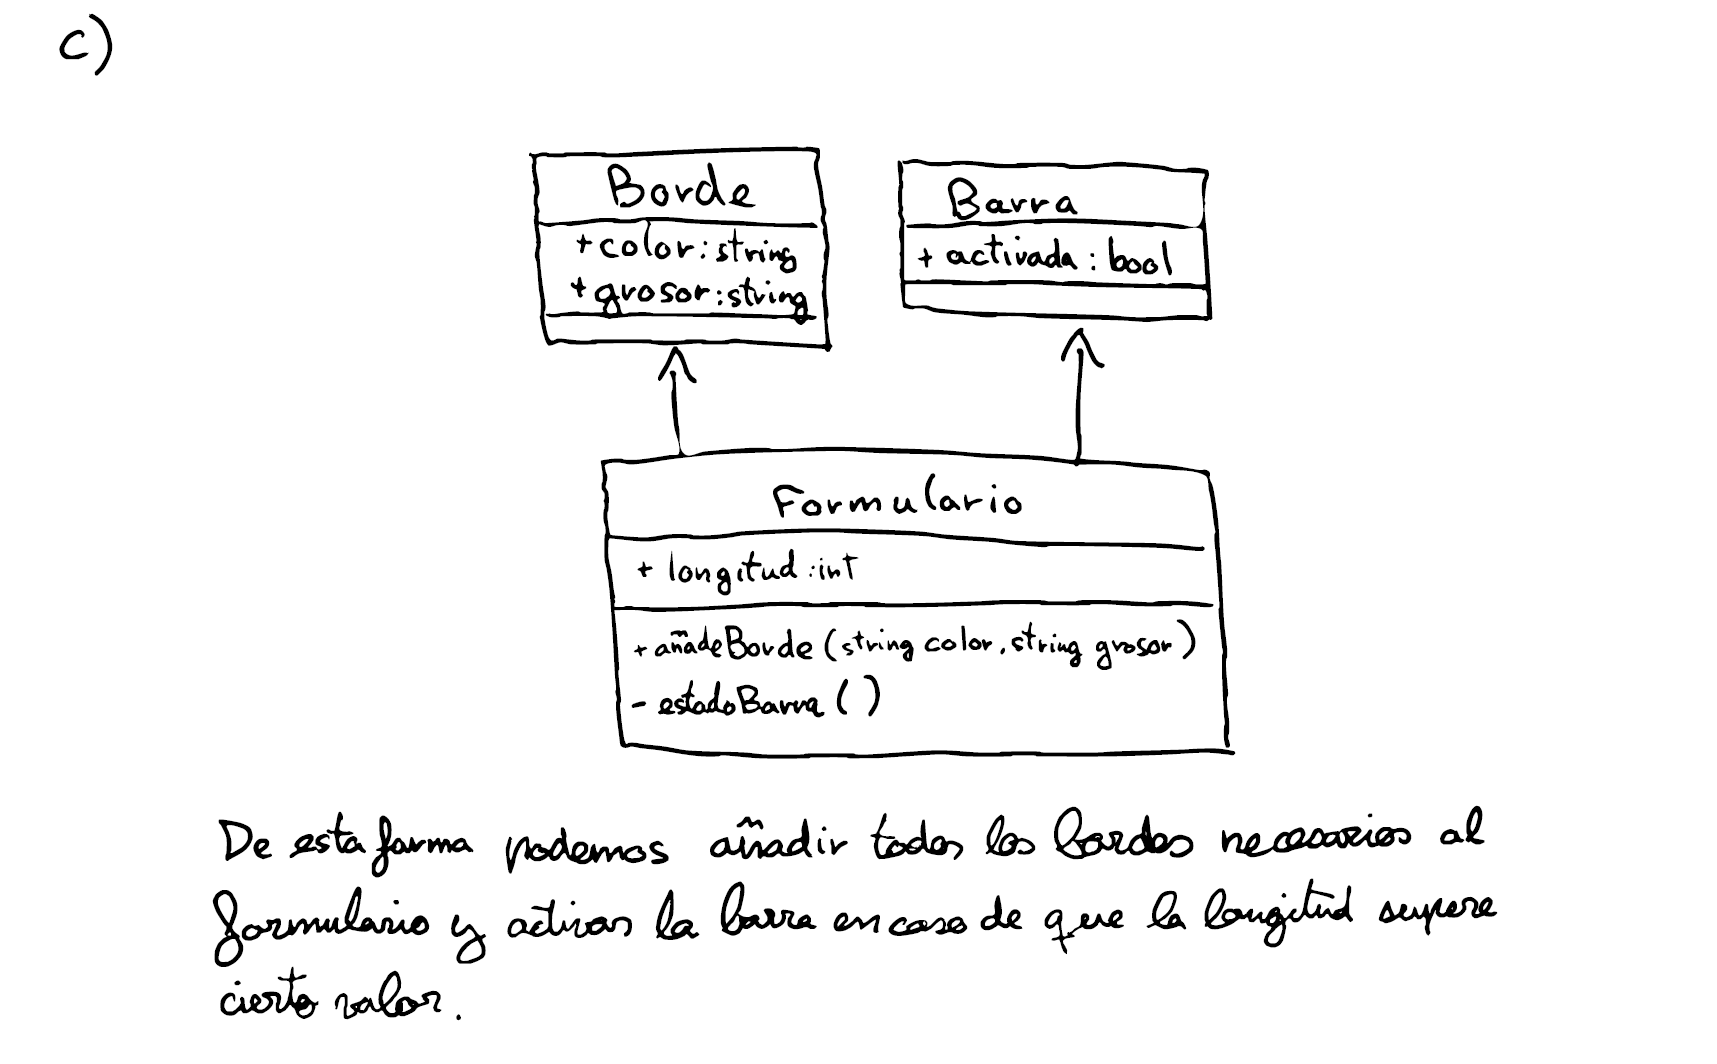 c)
Borde
+color:string
+grosor:string
Barra
+ activada : bool
Formulario
+ longitud :int
+ añadeBorde (string color, string grosor)
- estadoBarra ()
De esta forma podemos añadir todos los bordes necesarios al
formulario y activar la barra en caso de que la longitud supere
cierto valor.